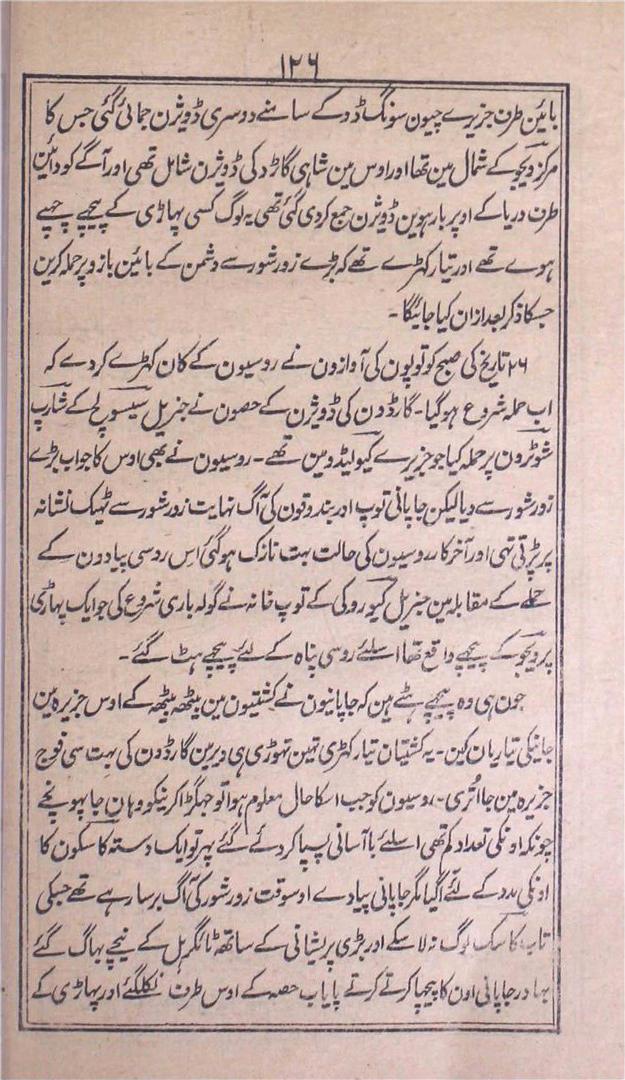 ۱۲۶
بائین طرف جزیرے چیون سونگ ڈو کے سامنے دوسری ڈویژن جمائی گئی جس کا
مرکز ویجو کے شمال مین تھا اور اوس مین شاہی گارڈ کی ڈویژن شامل تھی اور آگے کو دائین
طرف دریا کے اوپر بارہوین ڈویژن جمع کردی گئی تھی یہ لوگ کسی پہاڑی کے پیچھے چھپے
ہوے تھے اور تیار کھڑے تھے کہ بڑے زور شور سے دشمن کے بائین بازو پر حملہ کرین
جسکا ذکر بعد ازان کیا جائیگا۔
۲۶ تاریخ کی صبح کو توپون کی آوازون نے روسیون کے کان کھڑے کردے کہ
اب حملہ شروع ہوگیا۔ گارڈون کی ڈویژن کے حصون نے جنریل سیسولچ کے شارپ
شوٹرون پر حملہ کیا جو جزیرے کیولیڈو مین تھے۔ روسیون نے بھی اوس کا جواب بڑے
زور شور سے دیا لیکن جاپانی توپ اور بندوقون کی آگ نہایت زور شور سے ٹھیک نشانہ
پر پڑتی تہی اور آخرکار روسیون کی حالت بہت نازک ہوگئی اس روسی پیادون کے
حملے کے مقابلہ مین جنریل کیوروکی کے توپ خانہ نے گولہ باری شروع کی جو ایک پہاڑی
پر ویجو کے پیچھے واقع تھا اسلئے روسی پناہ کے لئے پیچھے ہٹ گئے۔
جون ہی وہ پیچھے ہٹے ہین کہ جاپانیون نے کشتیون مین بیٹھہ بیٹھہ کے اوس جزیرہ مین
جانیکی تیاریان کین۔ یہ کشتیان تیار کھڑی تہین تہوڑی ہی دیر مین گارڈون کی بہت سی فوج
جزیرہ مین جا اُتری۔ روسیون کو جب اسکا حال معلوم ہوا تو جھگڑا کرنیکو وہان جا پہونچے
چونکہ اونکی تعداد کم تھی اسلئے باآسانی پسپا کردئے گئے پہر تو ایک دستہ کاسکون کا
اونکی مدد کے لئے آگیا مگر جاپانی پیادے اوسوقت زور شور کی آگ برسا رہے تھے جسکی
تاب کاسک لوگ نہ لاسکے اور بڑی پریشانی کے ساتھ ٹائگر ہل کے نیچے بہاگ گئے
بہادر جاپانی اون کا پیچھا کرتے کرتے پایاب حصہ کے اوس طرف نکلگئے اور پہاڑی کے